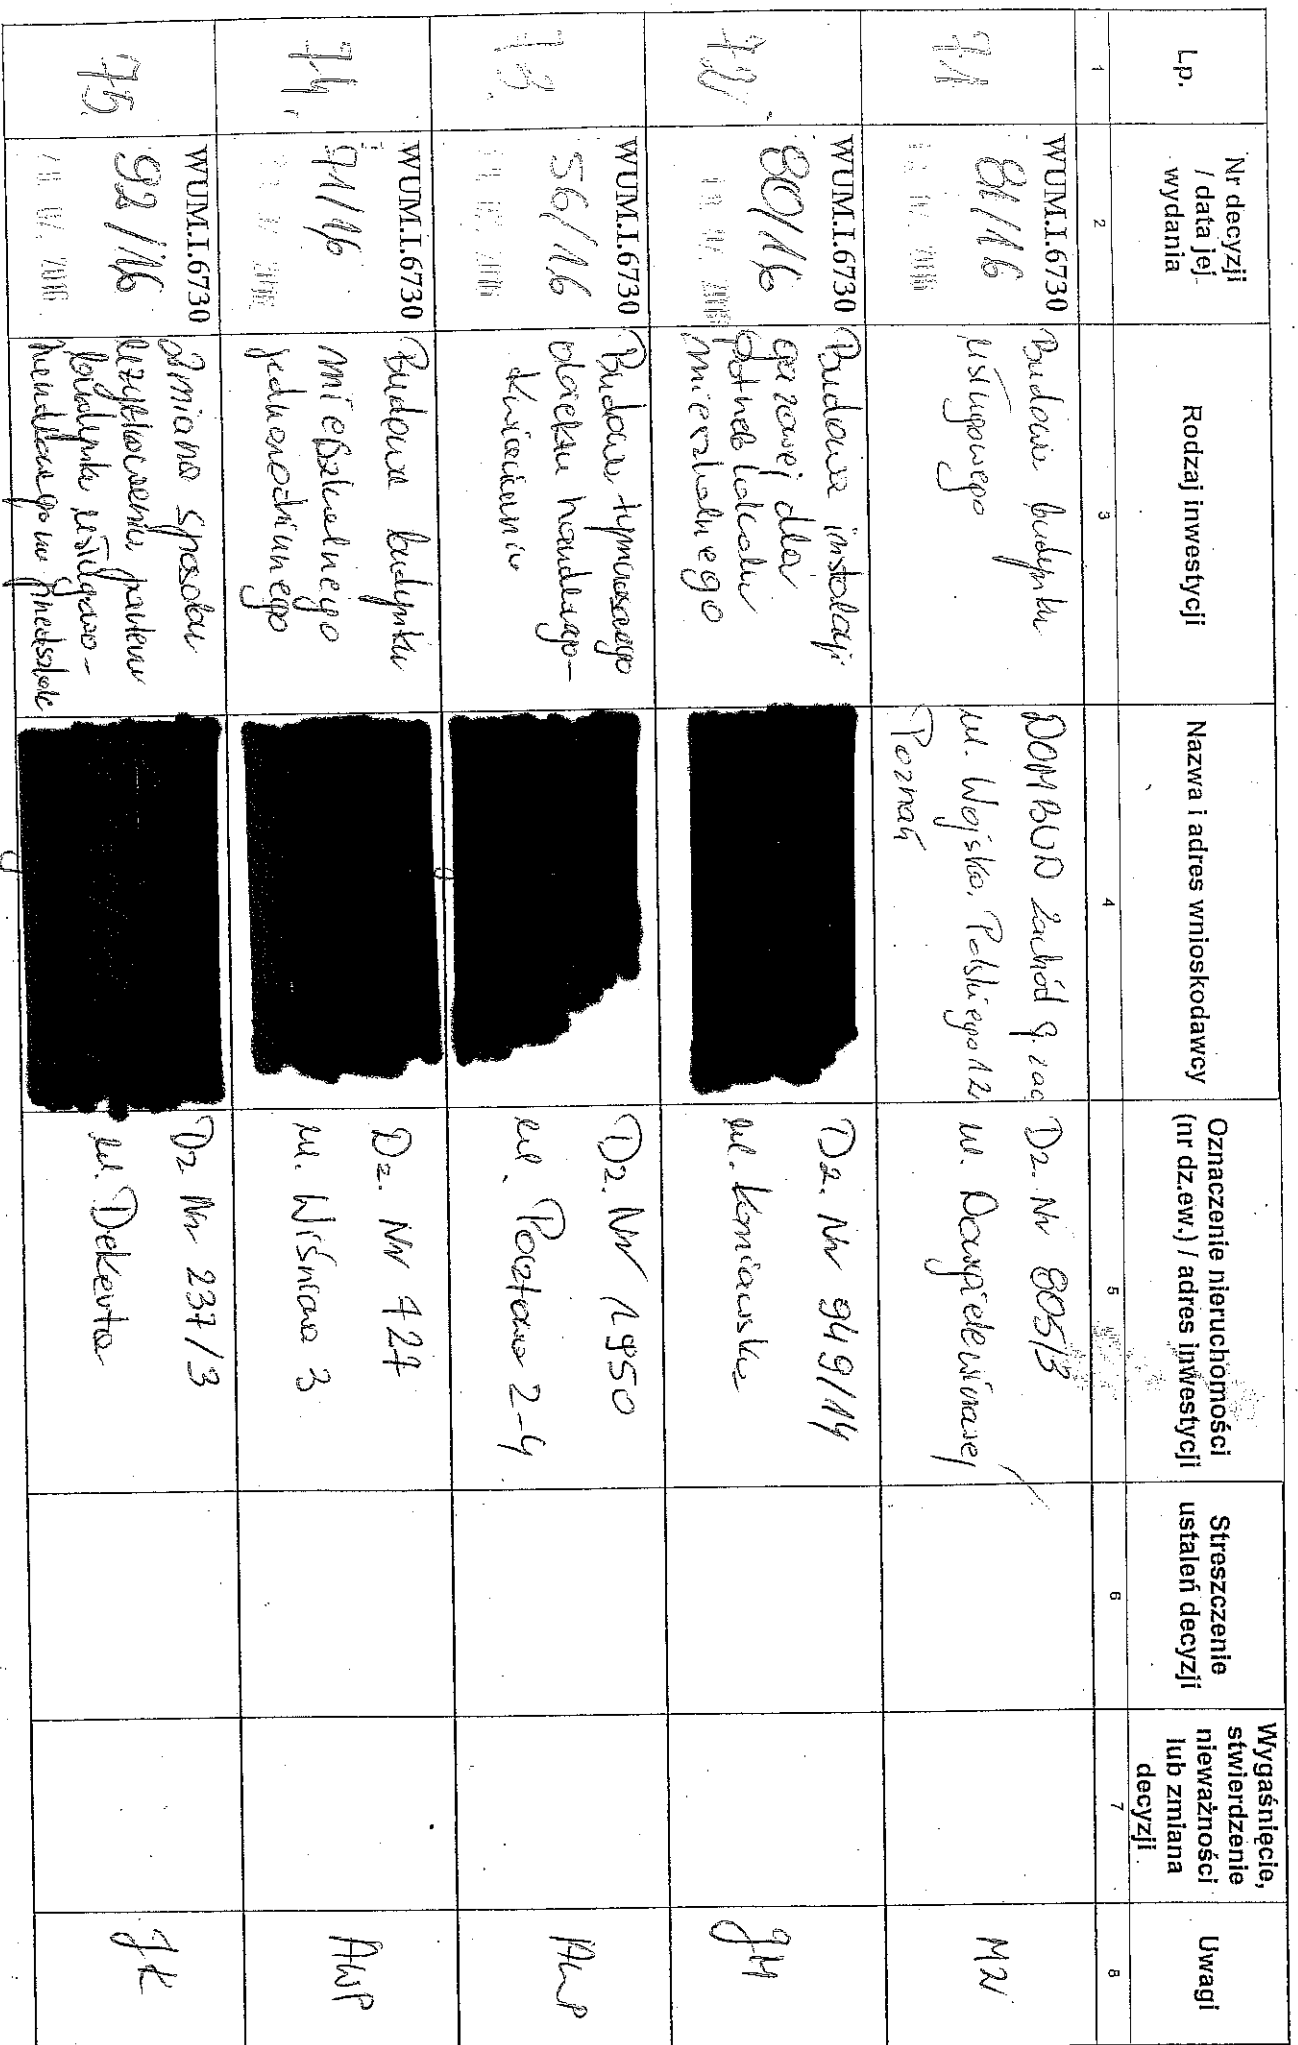 Lp.
Nr decyzji
/ data jej
wydania
Rodzaj inwestycji
Nazwa i adres wnioskodawcy
Oznaczenie nieruchomości
(nr dz.ew.) / adres inwestycji
Streszczenie
ustaleń decyzji
Wygaśnięcie,
stwierdzenie
nieważności
lub zmiana
decyzji
Uwagi
1
2
3
4
5
6
7
8
71
WUM.I.6730
81/16
2016
Budowa budynku
usługowego
DOMBUD Zachód
ul. Wojska Polskiego 12
Poznań
Dz. Nr 805/3
ul.
MN
72.
WUM.I.6730
80/16
2016
Budowa instalacji
gazowej dla
lokalu
mieszkalnego
Dz. Nr 949/14
ul.
JM
73.
WUM.I.6730
56/16
2016
Budowa tymczasowego
obiektu handlowego-
kwiaciarnia
Dz. Nr 1950
ul. Pocztowa 2-4
AWP
74.
WUM.I.6730
91/16
2016
Budowa budynku
mieszkalnego
jednorodzinnego
Dz. Nr 727
ul. Wiśniowa 3
AWP
75.
WUM.I.6730
92/16
2016
Zmiana sposobu
użytkowania parteru
budynku usługowo-
handlowego na przedszkole
Dz. Nr 237/3
ul. Dekerta
JK